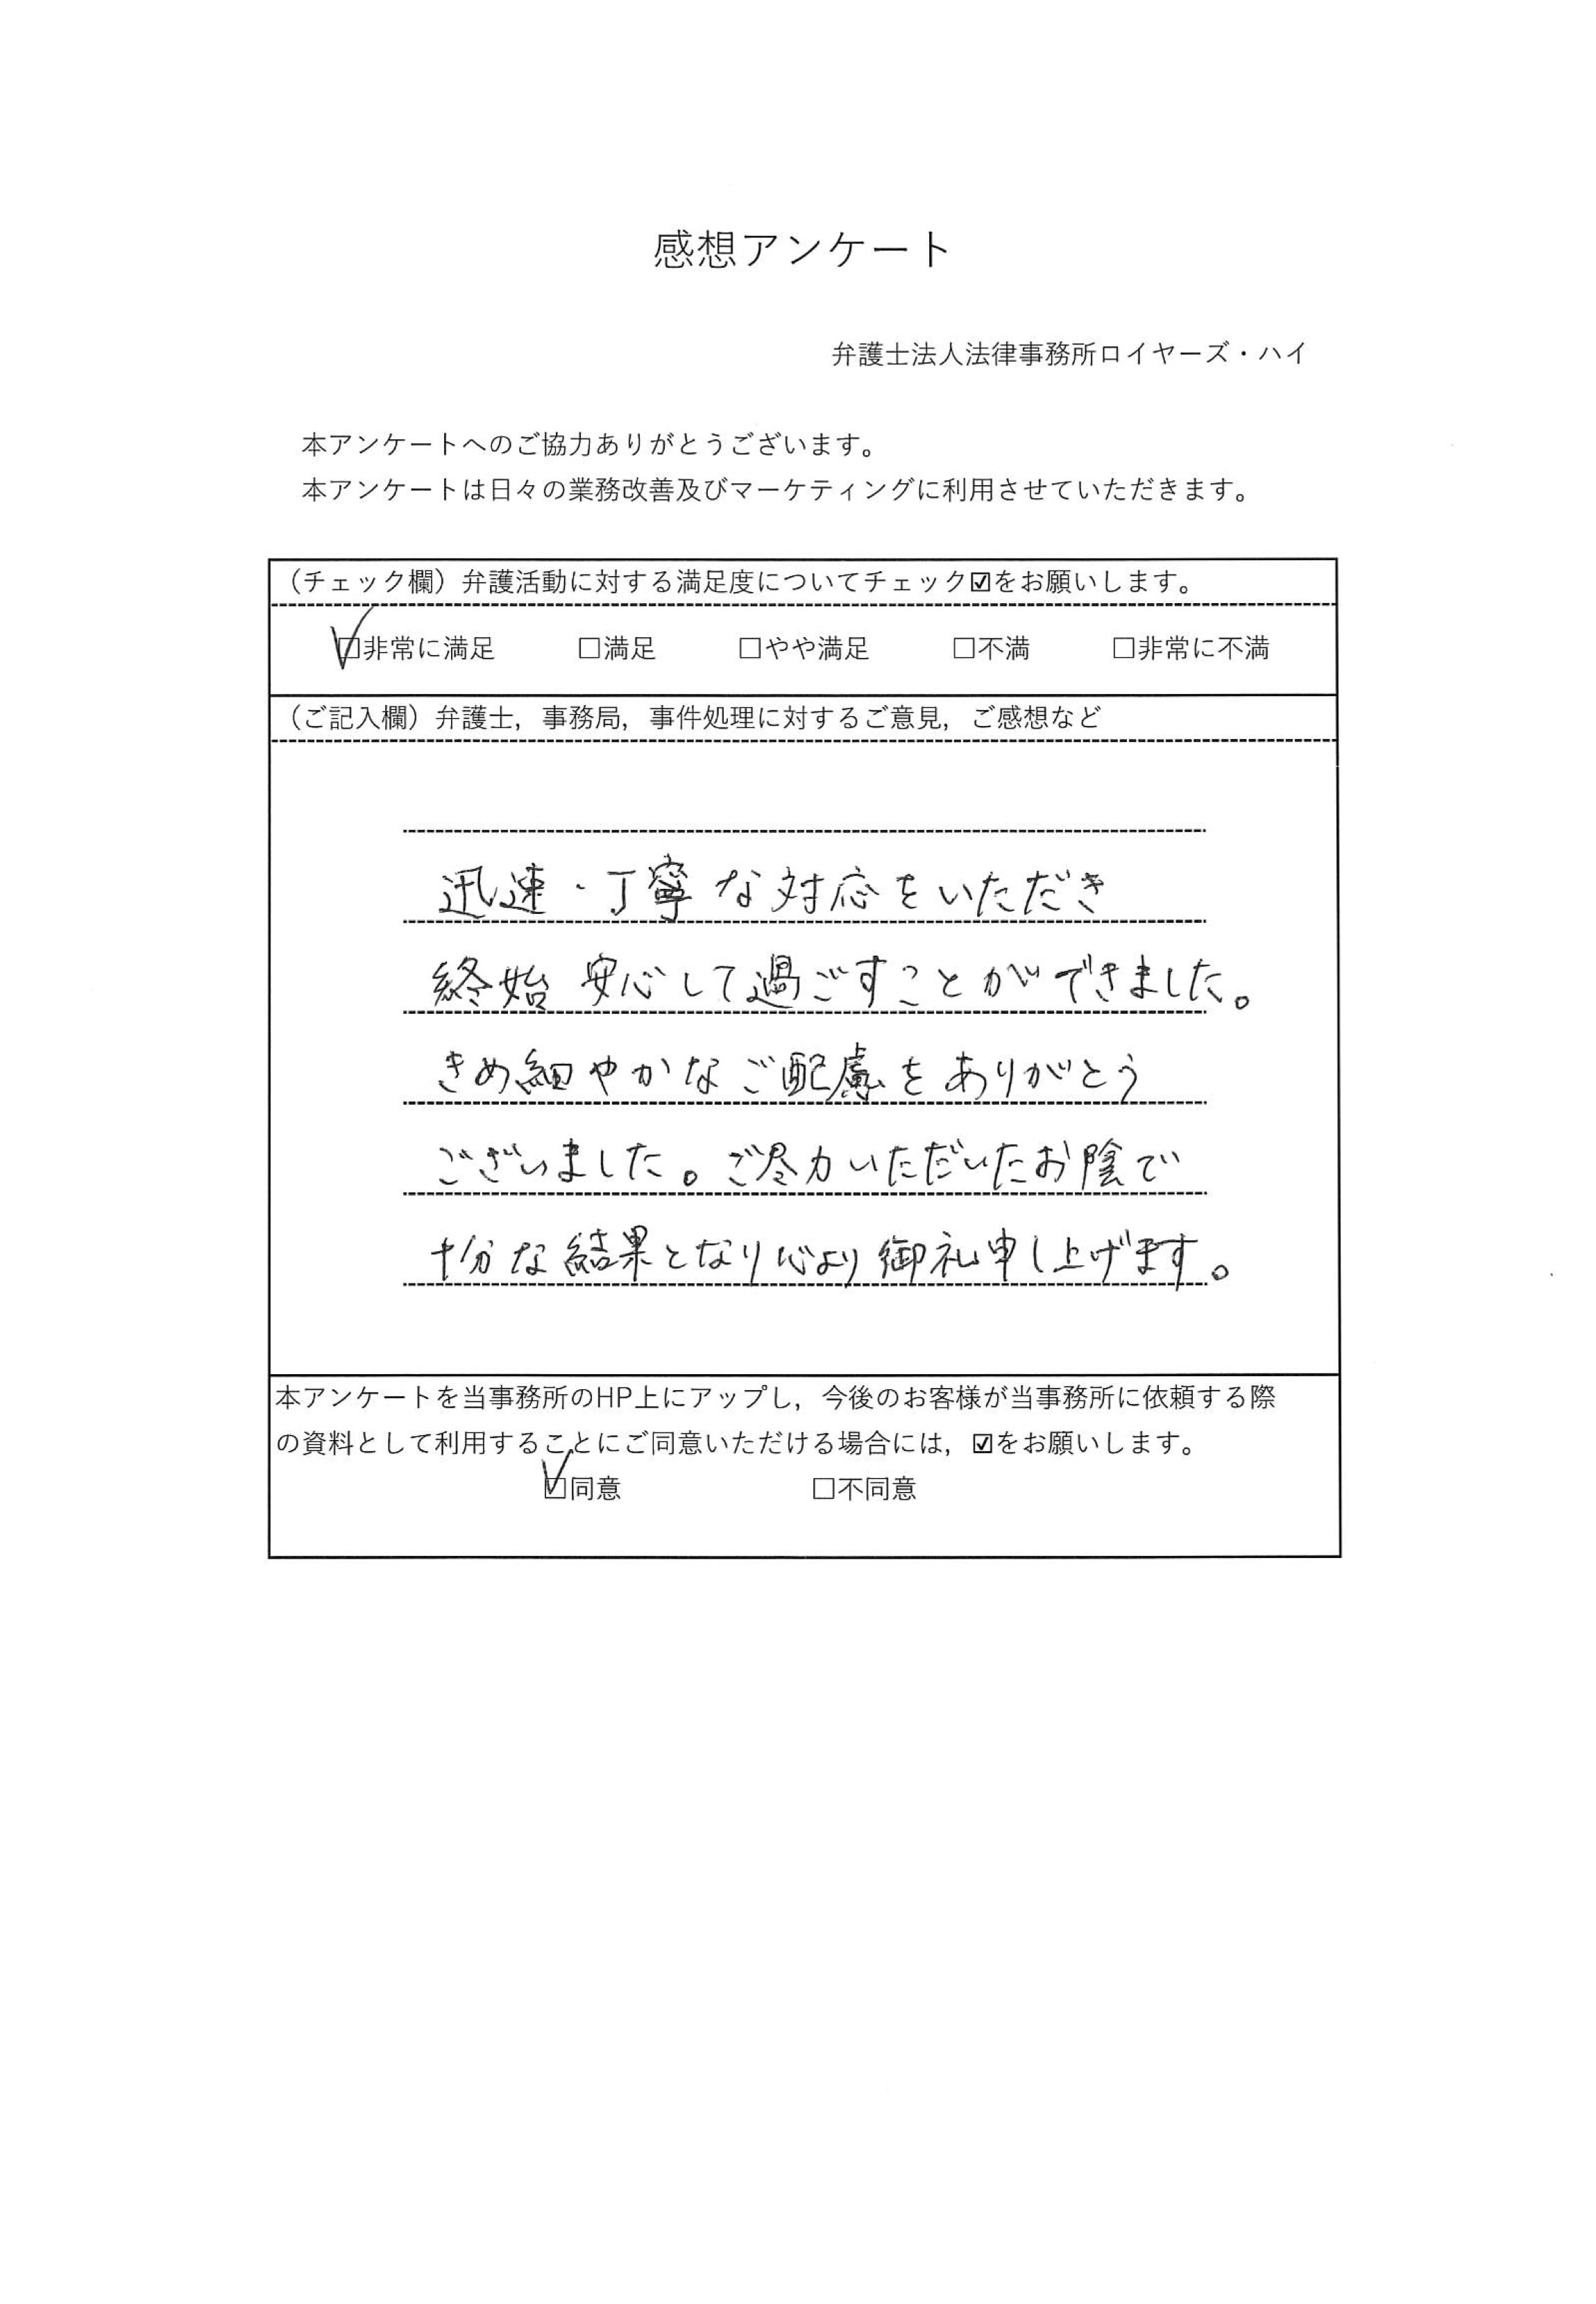 感想アンケート
弁護士法人法律事務所ロイヤーズ・ハイ
本アンケートへのご協力ありがとうございます。
本アンケートは日々の業務改善及びマーケティングに利用させていただきます。
（チェック欄）弁護活動に対する満足度についてチェック☑をお願いします。
☑非常に満足 □満足 □やや満足 □不満 □非常に不満
（ご記入欄）弁護士，事務局，事件処理に対するご意見，ご感想など
迅速・丁寧な対応をいただき
終始 安心して過ごすことができました。
きめ細やかなご配慮をありがとう
ございました。ご尽力いただいたお陰で
十分な結果となり心より御礼申し上げます。
本アンケートを当事務所のHP上にアップし，今後のお客様が当事務所に依頼する際
の資料として利用することにご同意いただける場合には，☑をお願いします。
☑同意 □不同意